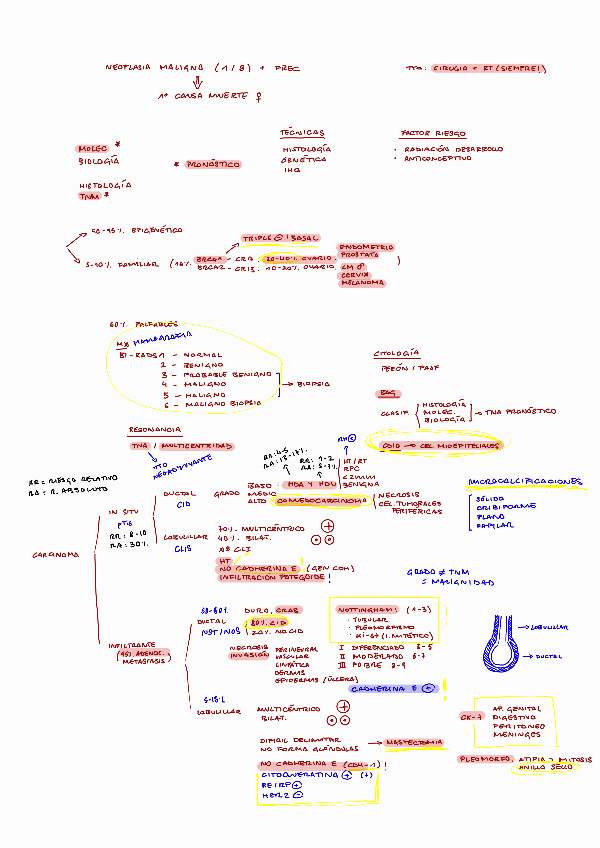 NEOPLASIA MALIGNA (1/8) + PREC
TTO: CIRUGIA + RT (SIEMPRE!)
1ª CAUSA MUERTE ♀
TÉCNICAS
HISTOLOGÍA
GENÉTICA
IHQ
FACTOR RIESGO
· RADIACIÓN DESARROLLO
· ANTICONCEPTIVO
MOLEC *
BIOLOGÍA
* PRONÓSTICO
HISTOLOGÍA
TNM *
EPIGENÉTICO
TRIPLE ⊖ / BASAL
5-10% FAMILIAR
BRCA1 - CR17. 20-40% OVARIO.
BRCA2 - CR13. 10-20% OVARIO.
ENDOMETRIO
PROSTATA
CM ♂
CERVIX
MELANOMA
60% PALPABLES
MX MAMOGRAFIA
BI-RADS 1 - NORMAL
2 - BENIGNO
3 - PROBABLE BENIGNO
4 - MALIGNO
5 - MALIGNO
6 - MALIGNO BIOPSIA
→ BIOPSIA
CITOLOGÍA
PEZÓN / PAAF
BAG
CLASIF
HISTOLOGÍA
MOLEC.
BIOLOGÍA
→ TNM PRONÓSTICO
RESONANCIA
TNM / MULTICENTRIDAD
TTO
NEOADYUVANTE
→ CEL MIOEPITELIALES
RR = RIESGO RELATIVO
RA = R. ABSOLUTO
RR: 4-5
RR: 1-2
RA: 5-7%
RH ⊕
HT/RT
RPC
<2mm
BENIGNA
CARCINOMA
IN SITU
pTis
RR: 8-10
RA: 30%
DUCTAL
CID
GRADO
BAJO = HDA Y HDU
MEDIO
ALTO COMEDOCARCINOMA
NECROSIS
CEL TUMORALES
PERIFERICAS
MICROCALCIFICACIONES
SÓLIDO
CRIBIFORME
PLANO
PAPILAR
LOBULILLAR
CLIS
70% MULTICÉNTRICO
40% BILAT.
HT
NO CADHERINA E (GEN CDH)
INFILTRACIÓN PAGETOIDE !
GRADO ≠ TNM
= MALIGNIDAD
INFILTRANTE
METASTASIS
DUCTAL
NST/NOS
DURO, CRAB
80% CID
20% NO CID
NECROSIS
INVASIÓN
PERINEURAL
VASCULAR
LINFÁTICA
DERMIS
EPIDERMIS (ÚLCERA)
NOTTINGHAM: (1-3)
· TUBULAR
· PLEOMORFISMO
· KI-67 (I. MITÓTICO)
I DIFERENCIADO 3-5
II MODERADO 6-7
III POBRE 8-9
CADHERINA E ⊕
→ LOBULILLAR
→ DUCTAL
5-15%
LOBULILLAR
MULTICÉNTRICO
BILAT.
DIFICIL DELIMITAR
NO FORMA GLÁNDULAS
→ MASTECTOMIA
NO CADHERINA E (CDH-1) !
CITOQUERATINA ⊕ (7)
RE/RP ⊕
HER2 ⊖
CK-7
AP. GENITAL
DIGESTIVO
PERITONEO
MENINGES
PLEOMORFO, ATIPIA > MITOSIS
ANILLO SELLO